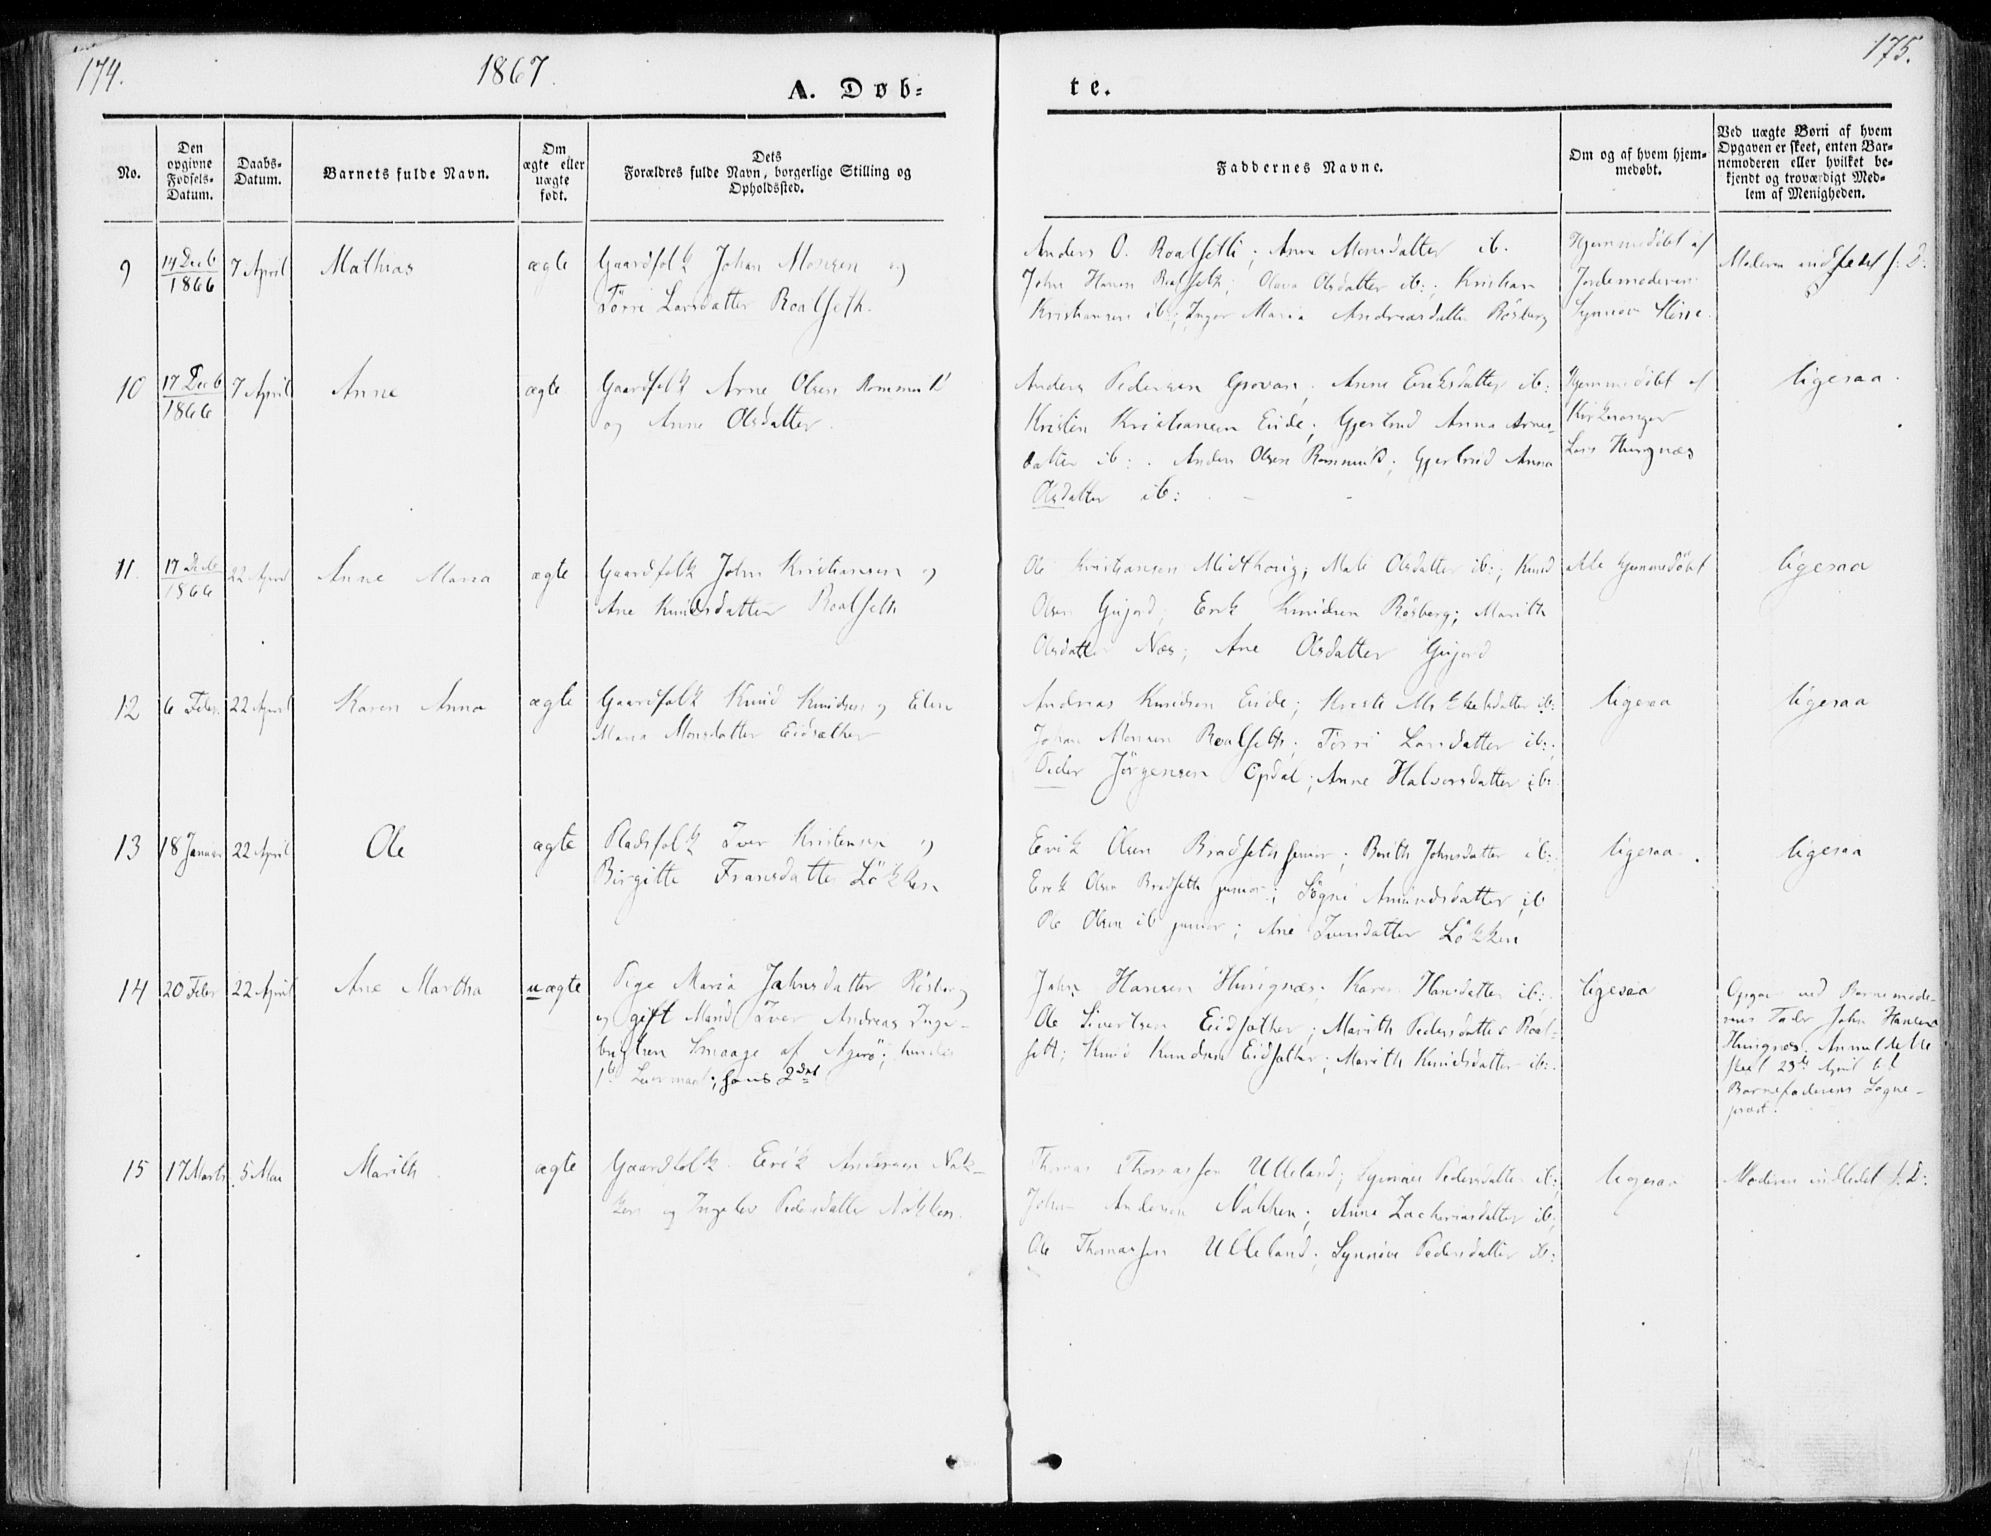 174.
1867.
175.
A. Døb-
te.
No.
Den opgivne Fødsels-Datum.
Daabs-Datum.
Barnets fulde Navn.
Om ægte eller uægte født.
Dets Forældres fulde Navn, borgerlige Stilling og Opholdssted.
Faddernes Navne.
Om og af hvem hjem-medøbt.
Ved uægte Børn af hvem Opgaven er skeet, enten Bar-nemoderen eller hvilket be-kjendt og troværdigt Med-lem af Menigheden.
9
14 Decb 1866
7 April
Mathias
ægte
Gaardfolk Johan Monsen og
Törri Larsdatter Roalseth.
Anders O. Roalsetli; Anne Monsdatter ib.
John Hansen Roalseth; Olava Olsdatter ib:; Kristian
Kristiansen ib:; Inger Maria Andreasdatter Rösberg
Hjemmedöbt af
Jordemoderen
Synnöve
Moderen indledet f. D:
10
17 Decb 1866
7 April
Anne
ægte
Gaardfolk Arne Olsen
og Anne Olsdatter.
Anders Pedersen Grovan; Anne Eriksdatter ib:
Kristen Kristiansen Eide; Gjertrud Anna Arnes-
datter ib: . Anders Olsen; Gjertrud Anna
Olsdatter ib:
Hjemmedöbt af
Kirkesanger
Lars Hungnæs
ligesaa.
11.
17 Decb 1866
22 April
Anne Maria
ægte
Gaardfolk John Kristiansen og
Ane Knudsdatter Roalseth
Ole Kristiansen Midthoug; Mali Olsdatter ib:; Knud
Olsen Gujord, Erik Knudsen Rösberg; Marith
Olsdatter Næs; Ane Olsdatter Gujord
ikke hjemmedöbt
ligesaa
12
6 Febr.
22 April
Karen Anna
ægte
Gaardfolk Knud Knudsen og Elen
Maria Monsdatter Eidsæther
Andreas Knudsen Eide; datter ib:
Johan Monsen Roalseth; Törri Larsdatter ib:.
Peder Jörgensen Opdal; Anne Halvorsdatter ib:
ligesaa
ligesaa
13
18 Januar
22 April
Ole
ægte
Pladsfolk Iver Kristensen og
Birgitte Fransdatter Lökken
Erik Olsen Bradseth senior; Berith Johnsdatter ib:
Erik Olsen Bradseth junior; Sögni Amundsdatter ib
Ole Olsen ib junior; Ane Iversdatter Lökken
ligesaa.
ligesaa
14
20 Febr
22 April
Ane Martha
uægte
Pige Maria Johnsdatter Rösberg
og gift Mand Iver Andreas Inge-
brigtsen Smaage af Agerö; hendes
1ste Leiermaal; hans 2det
John Hansen Hungnæs; Karen Hansdatter ib:.
Ole Sivertsen Eidsæther; Marith Pedersdatter Roal-
seth; Knud Knudsen Eidsæther; Marith Knudsdatter ib:.
ligesaa
Opgav ved Barnemode-
rens Fader John Hansen
Hungnæs. Anmeldelse
skeet 23de April til
Barnefaderens Sogne-
præst.
15
17 Marts
5 Mai
Marith.
ægte
Gaardfolk Erik Andersen Nak-
ken og Ingebor Pedersdatter Nakken.
Thomas Thomassen Ulleland; Synnöve Pedersdatter ib:,
John Andersen Nakken; Anne Zachariasdatter ib:,
Ole Thomassen Ulleland; Synnöve Pedersdatter ib:
ligesaa
Moderen indledet f. D: